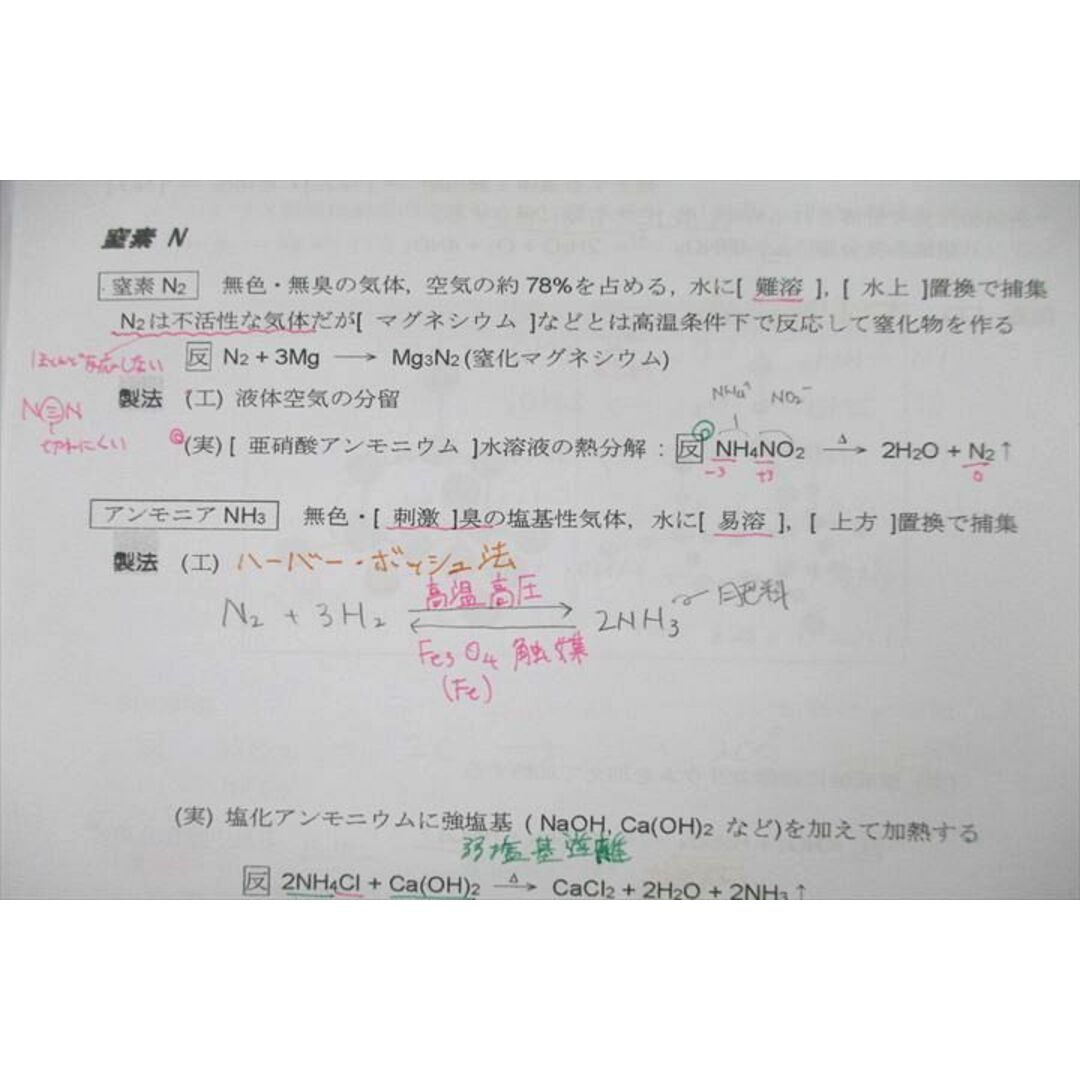 窒素 N
窒素 N₂ 無色・無臭の気体, 空気の約 78%を占める, 水に[ 難溶 ], [ 水上 ]置換で捕集
N₂は不活性な気体だが[ マグネシウム ]などとは高温条件下で反応して窒化物を作る
ほとんど反応しない
反 N₂ + 3Mg ⟶ Mg₃N₂ (窒化マグネシウム)
製法 (工) 液体空気の分留
NH₄⁺ NO₂⁻
N≡N
切れにくい
(実) [ 亜硝酸アンモニウム ]水溶液の熱分解 : 反 NH₄NO₂ ⟶ 2H₂O + N₂↑
Δ
-3 +3 0
アンモニア NH₃ 無色・[ 刺激 ]臭の塩基性気体, 水に[ 易溶 ], [ 上方 ]置換で捕集
製法 (工) ハーバー・ボッシュ法
高温高圧
N₂ + 3H₂ ⇄ 2NH₃ 肥料
Fe₃O₄ 触媒
(Fe)
(実) 塩化アンモニウムに強塩基 ( NaOH, Ca(OH)₂ など)を加えて加熱する
弱塩基遊離
Δ
反 2NH₄Cl + Ca(OH)₂ ⟶ CaCl₂ + 2H₂O + 2NH₃↑